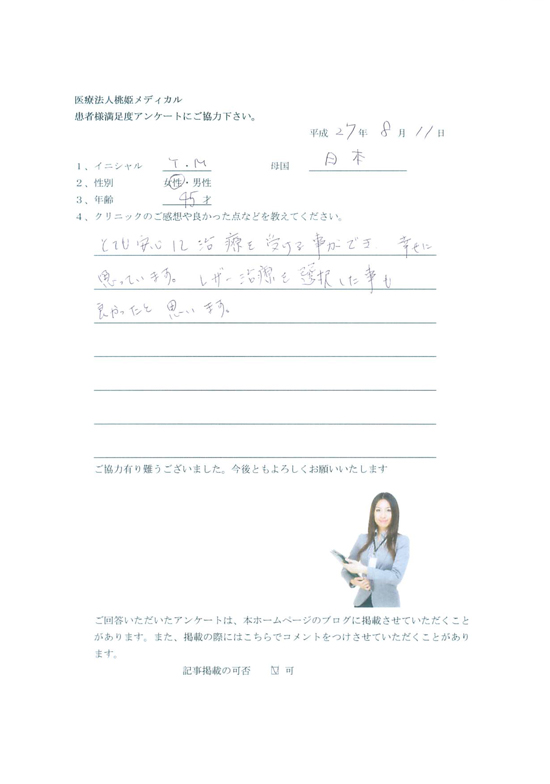 医療法人桃姫メディカル
患者様満足度アンケートにご協力下さい。
平成 27年 8月 11日
1、イニシャル Y.M 母国 日本
2、性別 女性・男性
3、年齢 45才
4、クリニックのご感想や良かった点などを教えてください。
とても安心して治療を受ける事ができ 幸せに
思っています。 レザー治療を選択した事も
良かったと思います。
ご協力有り難うございました。今後ともよろしくお願いいたします
ご回答いただいたアンケートは、本ホームページのブログに掲載させていただくこと
があります。また、掲載の際にはこちらでコメントをつけさせていただくことがあり
ます。
記事掲載の可否 ☑ 可